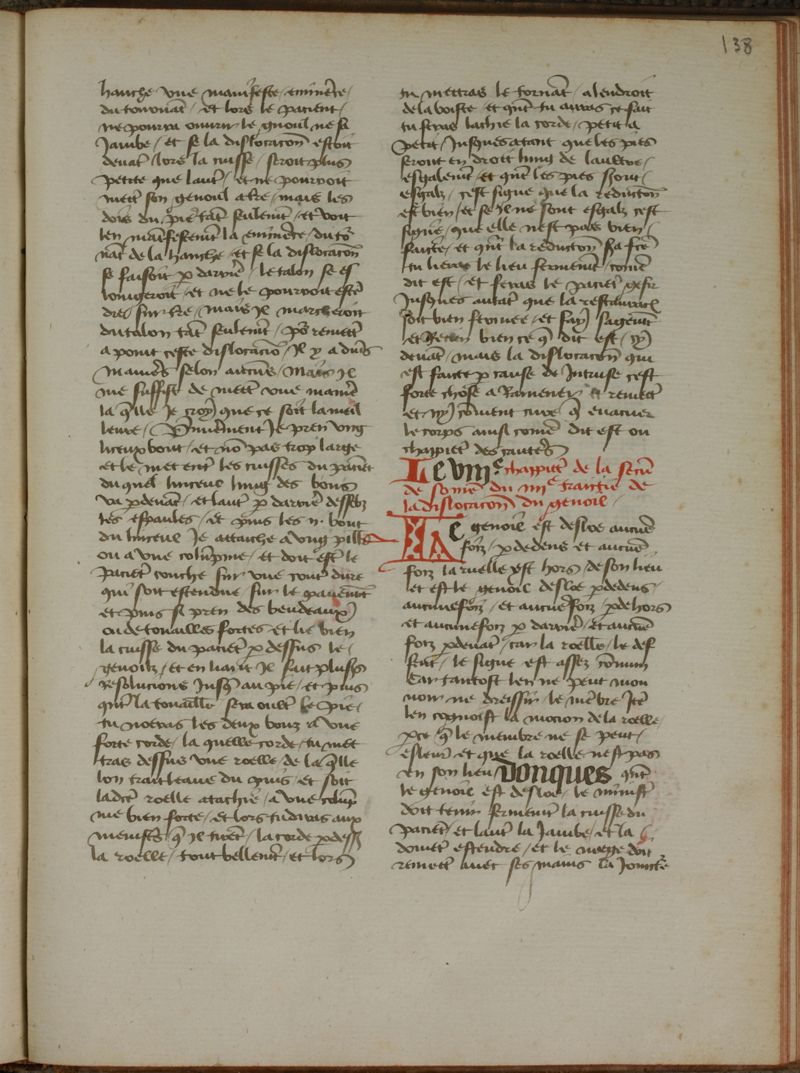 138
hanche vne manifeste eminēce
du tornāt / et lors le pacient
ne pourra ouurir le genoul ne sa
Jambe / et se la dislocacōn estoit
deuāt lors la cuisse seroit plus
petite que laut̄ / et ne pourroit
mett̄ son genoul a t̄re / mais les
dois du pie tāt seulemt̄ / et voit
len māifestemt̄ la eminēce du tor
nāt de la hanche / et se la dislocacōn
se faisoit p darrie / le talon se es
longeroit / et ne le pourroit estēn
dre sur t̄re / mais Il marcheroit
du talon tāt seulemt̄ / po remett̄
a point ceste dislocaciō / Il y a diūs
manieres selon aucūs / mais Il
me suffist de mett̄ vne manie
la qlle Je croy que ce soit la meil
leure / Je pren vng
linceux bout / et nō pas trop large
et le met ent̄ les cuisses du paciēt
du quel linceux lung des bous
va p deuāt / et laut̄ p darrie dessoubz
les espaules / et puis les ij bous
du linceux Je attache a vng pill
ou a vne colūpne / et doit est̄ le
pacient couche sur vne coute dure
qui soit estendue sur le pauemt̄
et puis Je pren des bendeaux
ou de touailles fortes / et lie bien
la cuisse du pacient p dessus le
genoulz / et en liant Il fait plus
reuolucions Jusq au pie / et puis
qnt la touaille sera oult̄ le pie
tu noeras les deux bouz a vne
forte corde / la quelle corde tu met
tras dessus vne roelle de la qlle
lon trait leaue du puis / et soit
ladce roelle atachie a vne colūp
ne bien forte / et lors tu diras aux
menist̄s q Il tirēt la corde p dess
la roelle / tout bellemt̄ / et lors
tu mettras le tornāt a lendroit
de la boiste / et qnt tu auras ce fait
tu feras laschie la corde petit a
petit / Jusques a tant que les pies
seront en droit lung de lautre
esgalemt̄ / et qnt les pies sont
esgalz / cest signe que la reductōn
est bien / et se Il ne sont esgalz cest
signe que elle nest pas bien
faite / et qnt la reductōn sa fce
tu lieras le lieu fermemt̄ cōme
dit est / et feras le pacient gesir
Jusques a tant que la restauracōn
soit bien fermee / et fay sagemt̄
et bien ce q dit est cy
deuāt / mais la dislocacōn qui
est faicte p cause de Intruse cest
forte chose a ramener et remett̄
et cōment cure q euacuer
le corps ainsi cōme dit est ou
chappitē des
Le viije chappitē de la secū
de some du iiije traictie de
la dislocacōn du genoil
Le genoil est desloe aucune
foiz p dedens / et aucune
foiz la roelle est hors de son lieu
et est le genoil desloe p dedens
aucunefoiz / et aucunefoiz p dehors
et aucunefoiz p darrie / et aucune
foiz p deuāt / car la roelle le def
fent / le signe est assez cōmun
car tantost len ne peut mou
uoir ne dressir le mēbre Itē
len cognoist la mocion de la roelle
pce q le membre ne se peut
esleuer et que la roelle nest pas
en son lieu Donques qnt
le genoil est desloe / le minist̄
doit tenir fermemt̄ la cuisse du
pacient / et laut̄ la Jambe / et la
doiuēt estendre / et le mege doit
remett̄ auec ses mains la Jointē